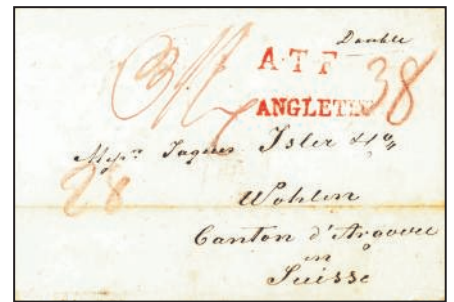 Double
A.T.F
38
ANGLETER
Messrs Jaques Isler & Co
28
Wohlen
Canton d'Argovie
en
Suisse